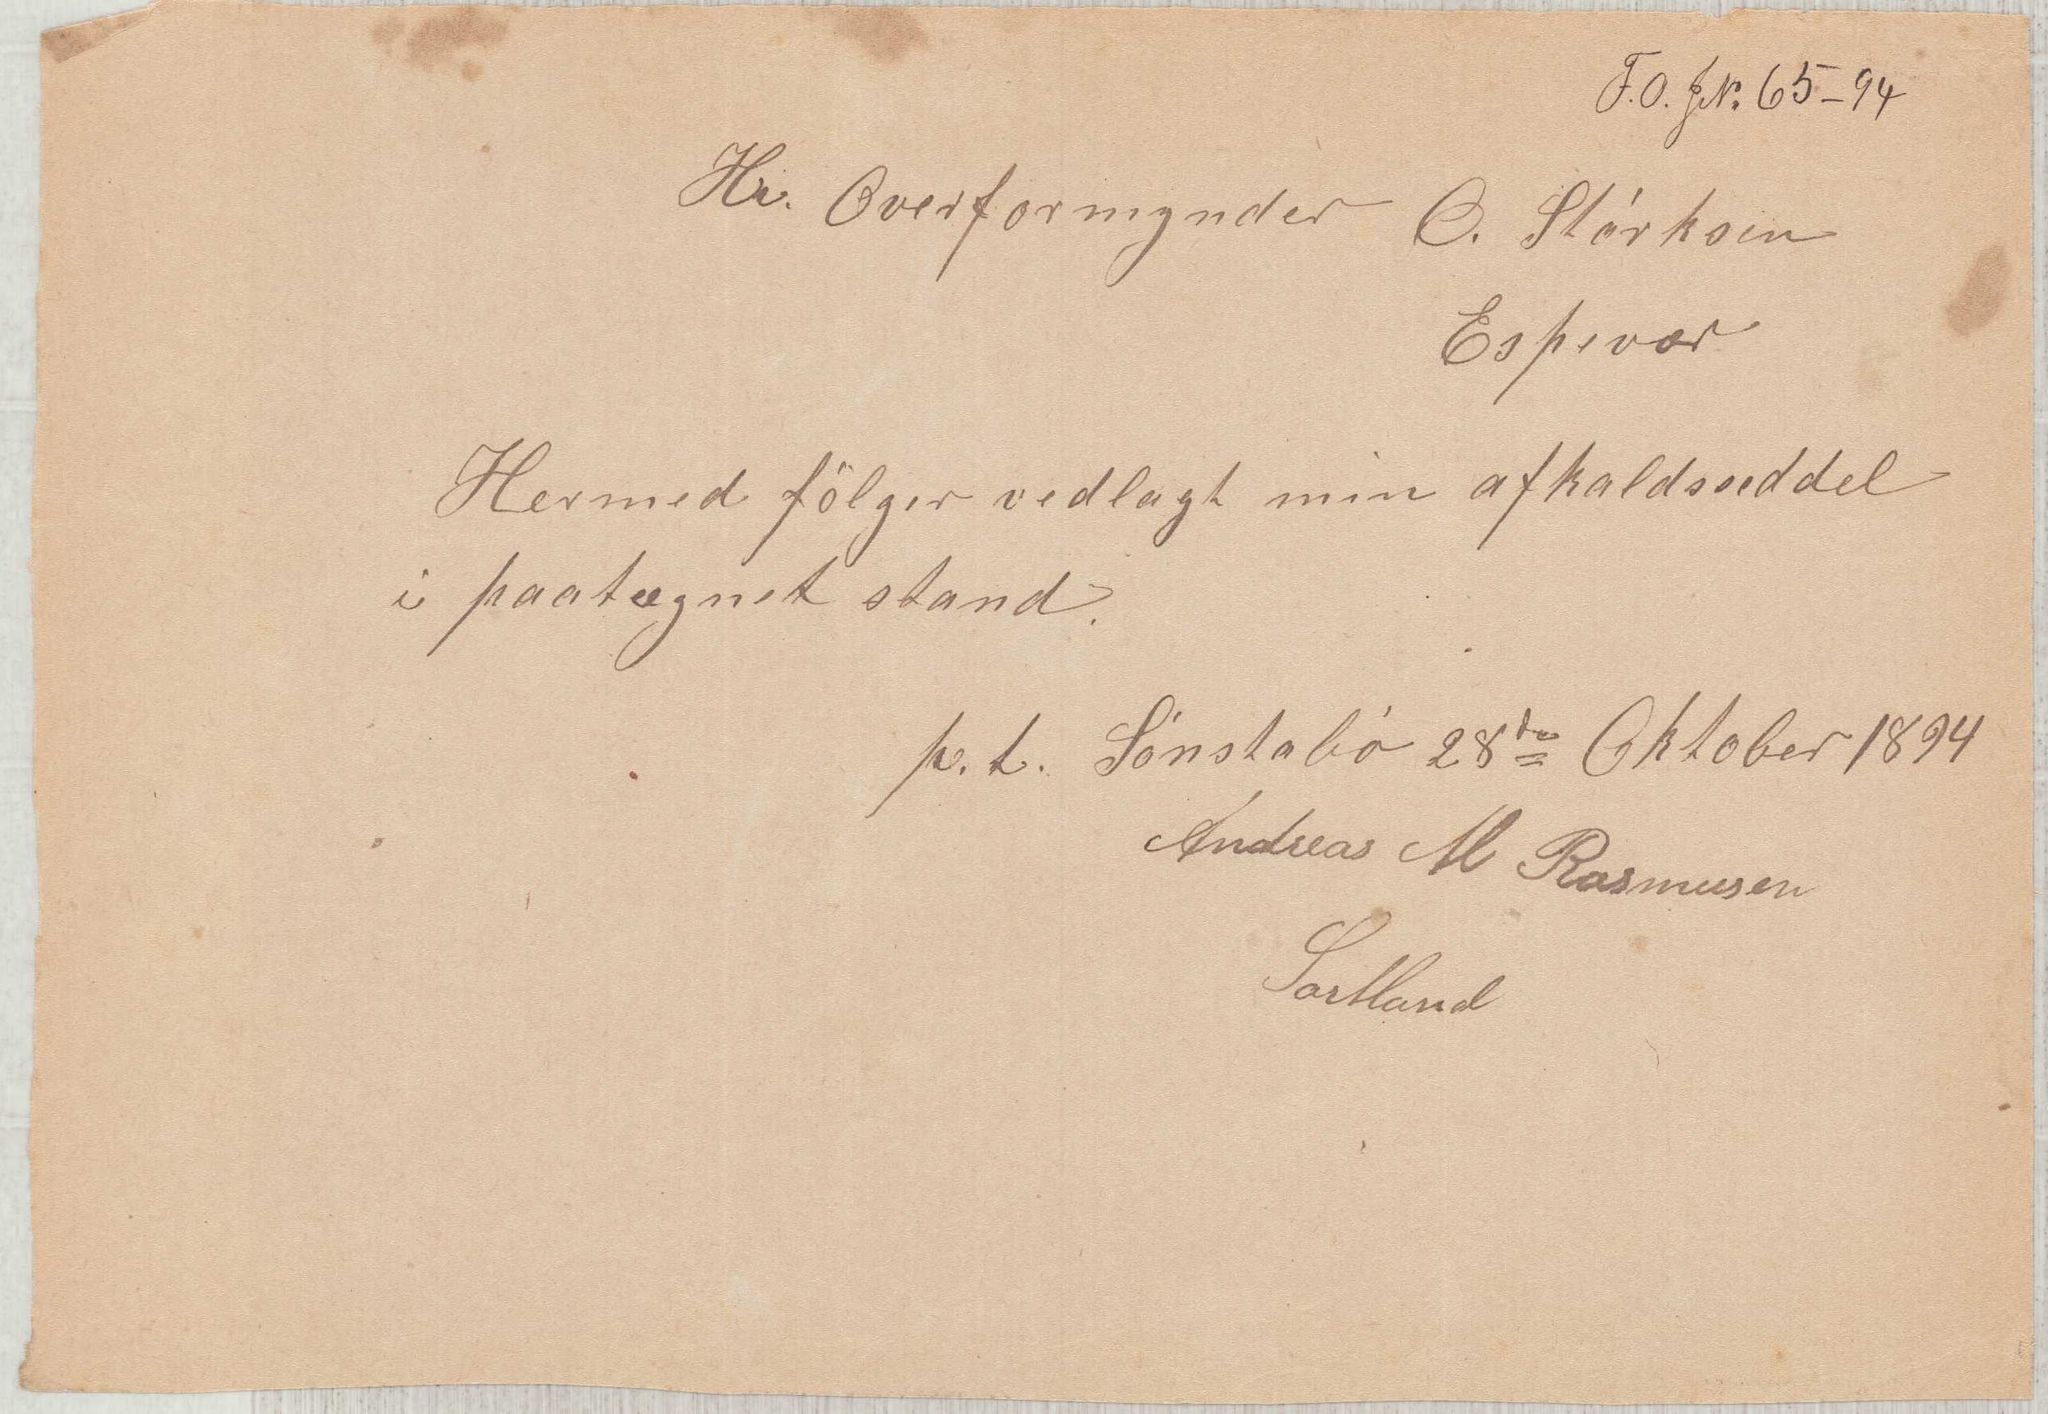 F.O. JN. 65-94
Hr. Overformynder O. Störksen
Espevær
Hermed fölger vedlagt min afkaldsseddel
i paategnet stand.
p.t. Sönstabö 28de Oktober 1894
Andreas M Rasmusen
Sortland